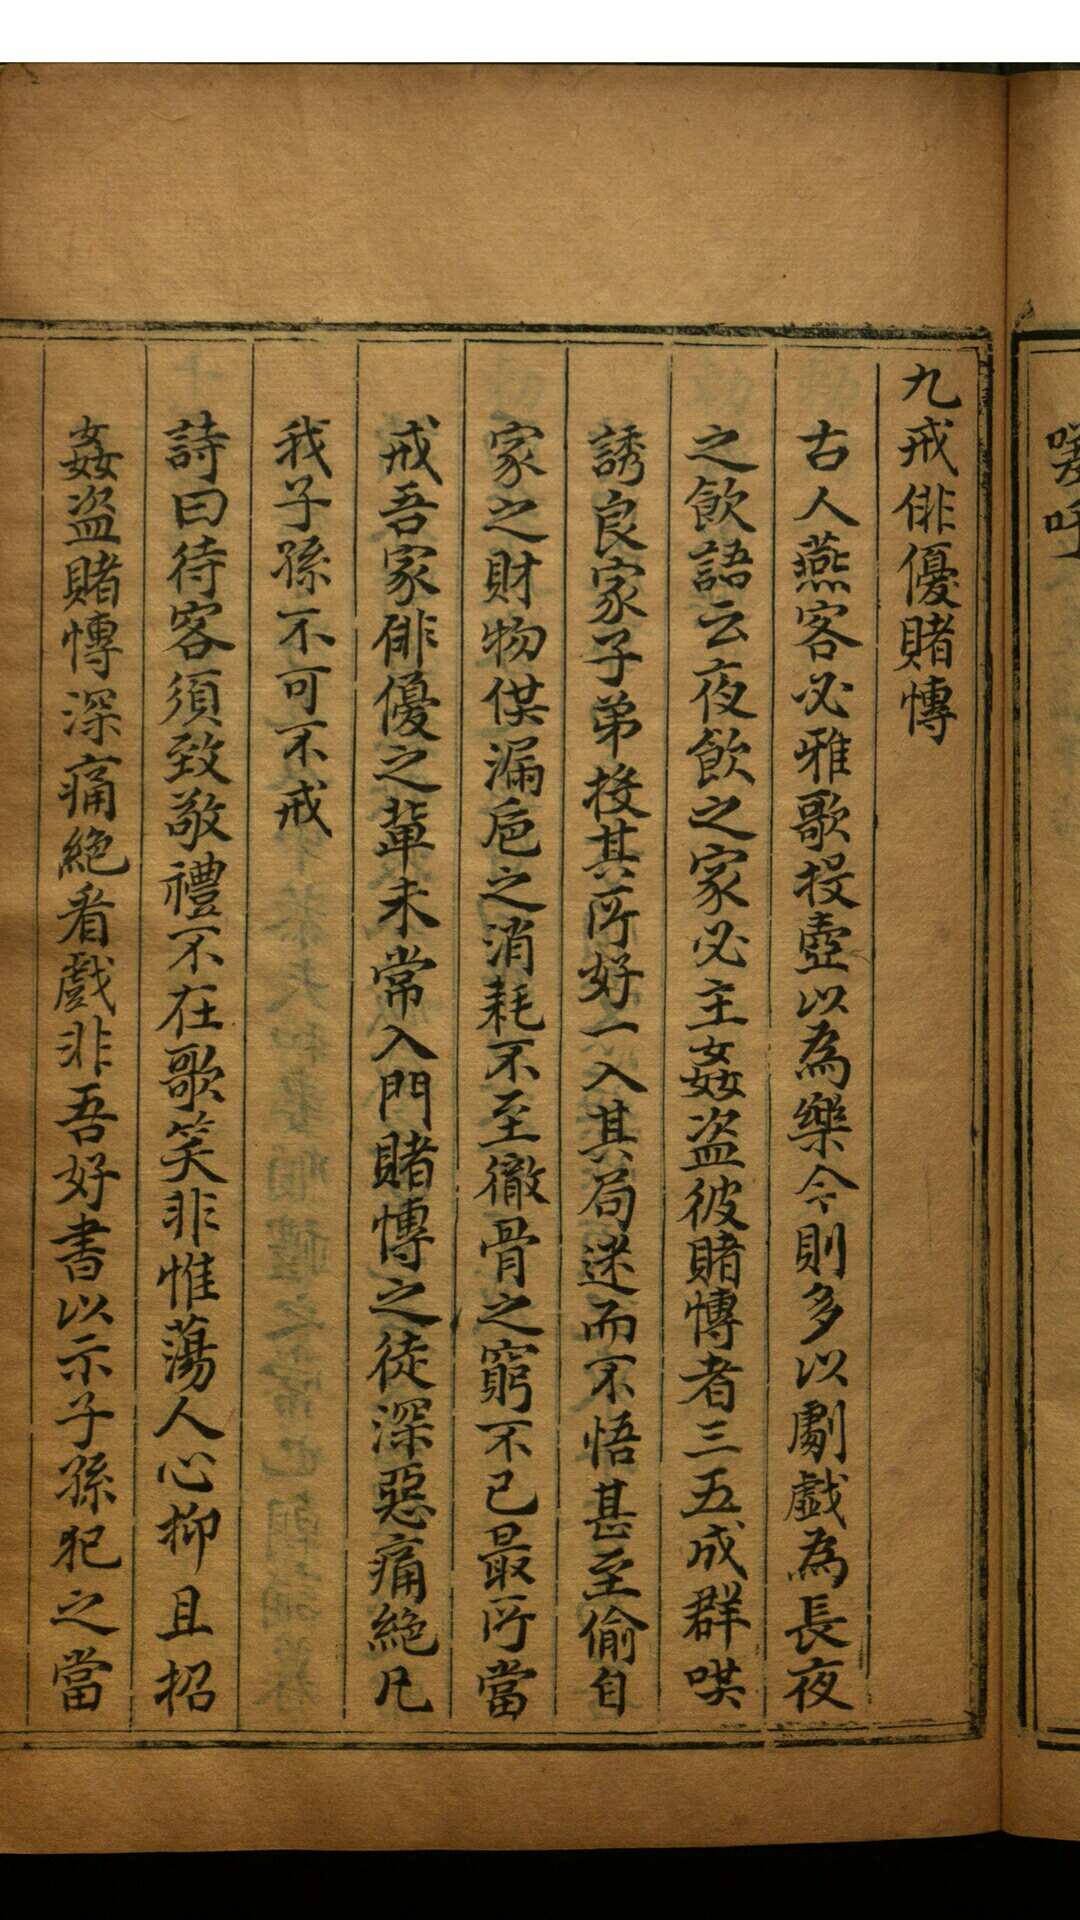 嘆呼
九戒俳優賭愽
古人燕客必雅歌投壺以為樂今則多以劇戲為長夜
之飲語云夜飲之家必主姦盗彼賭愽者三五成群哄
誘良家子弟投其所好一入其局迷而不悟甚至偷自
家之財物供漏巵之消耗不至徹骨之窮不已最所當
戒吾家俳優之輩未常入門賭愽之徒深惡痛絕凡
我子孫不可不戒
詩曰待客須致敬禮不在歌笑非惟蕩人心抑且招
姦盗賭愽深痛絕看戲非吾好書以示子孫犯之當